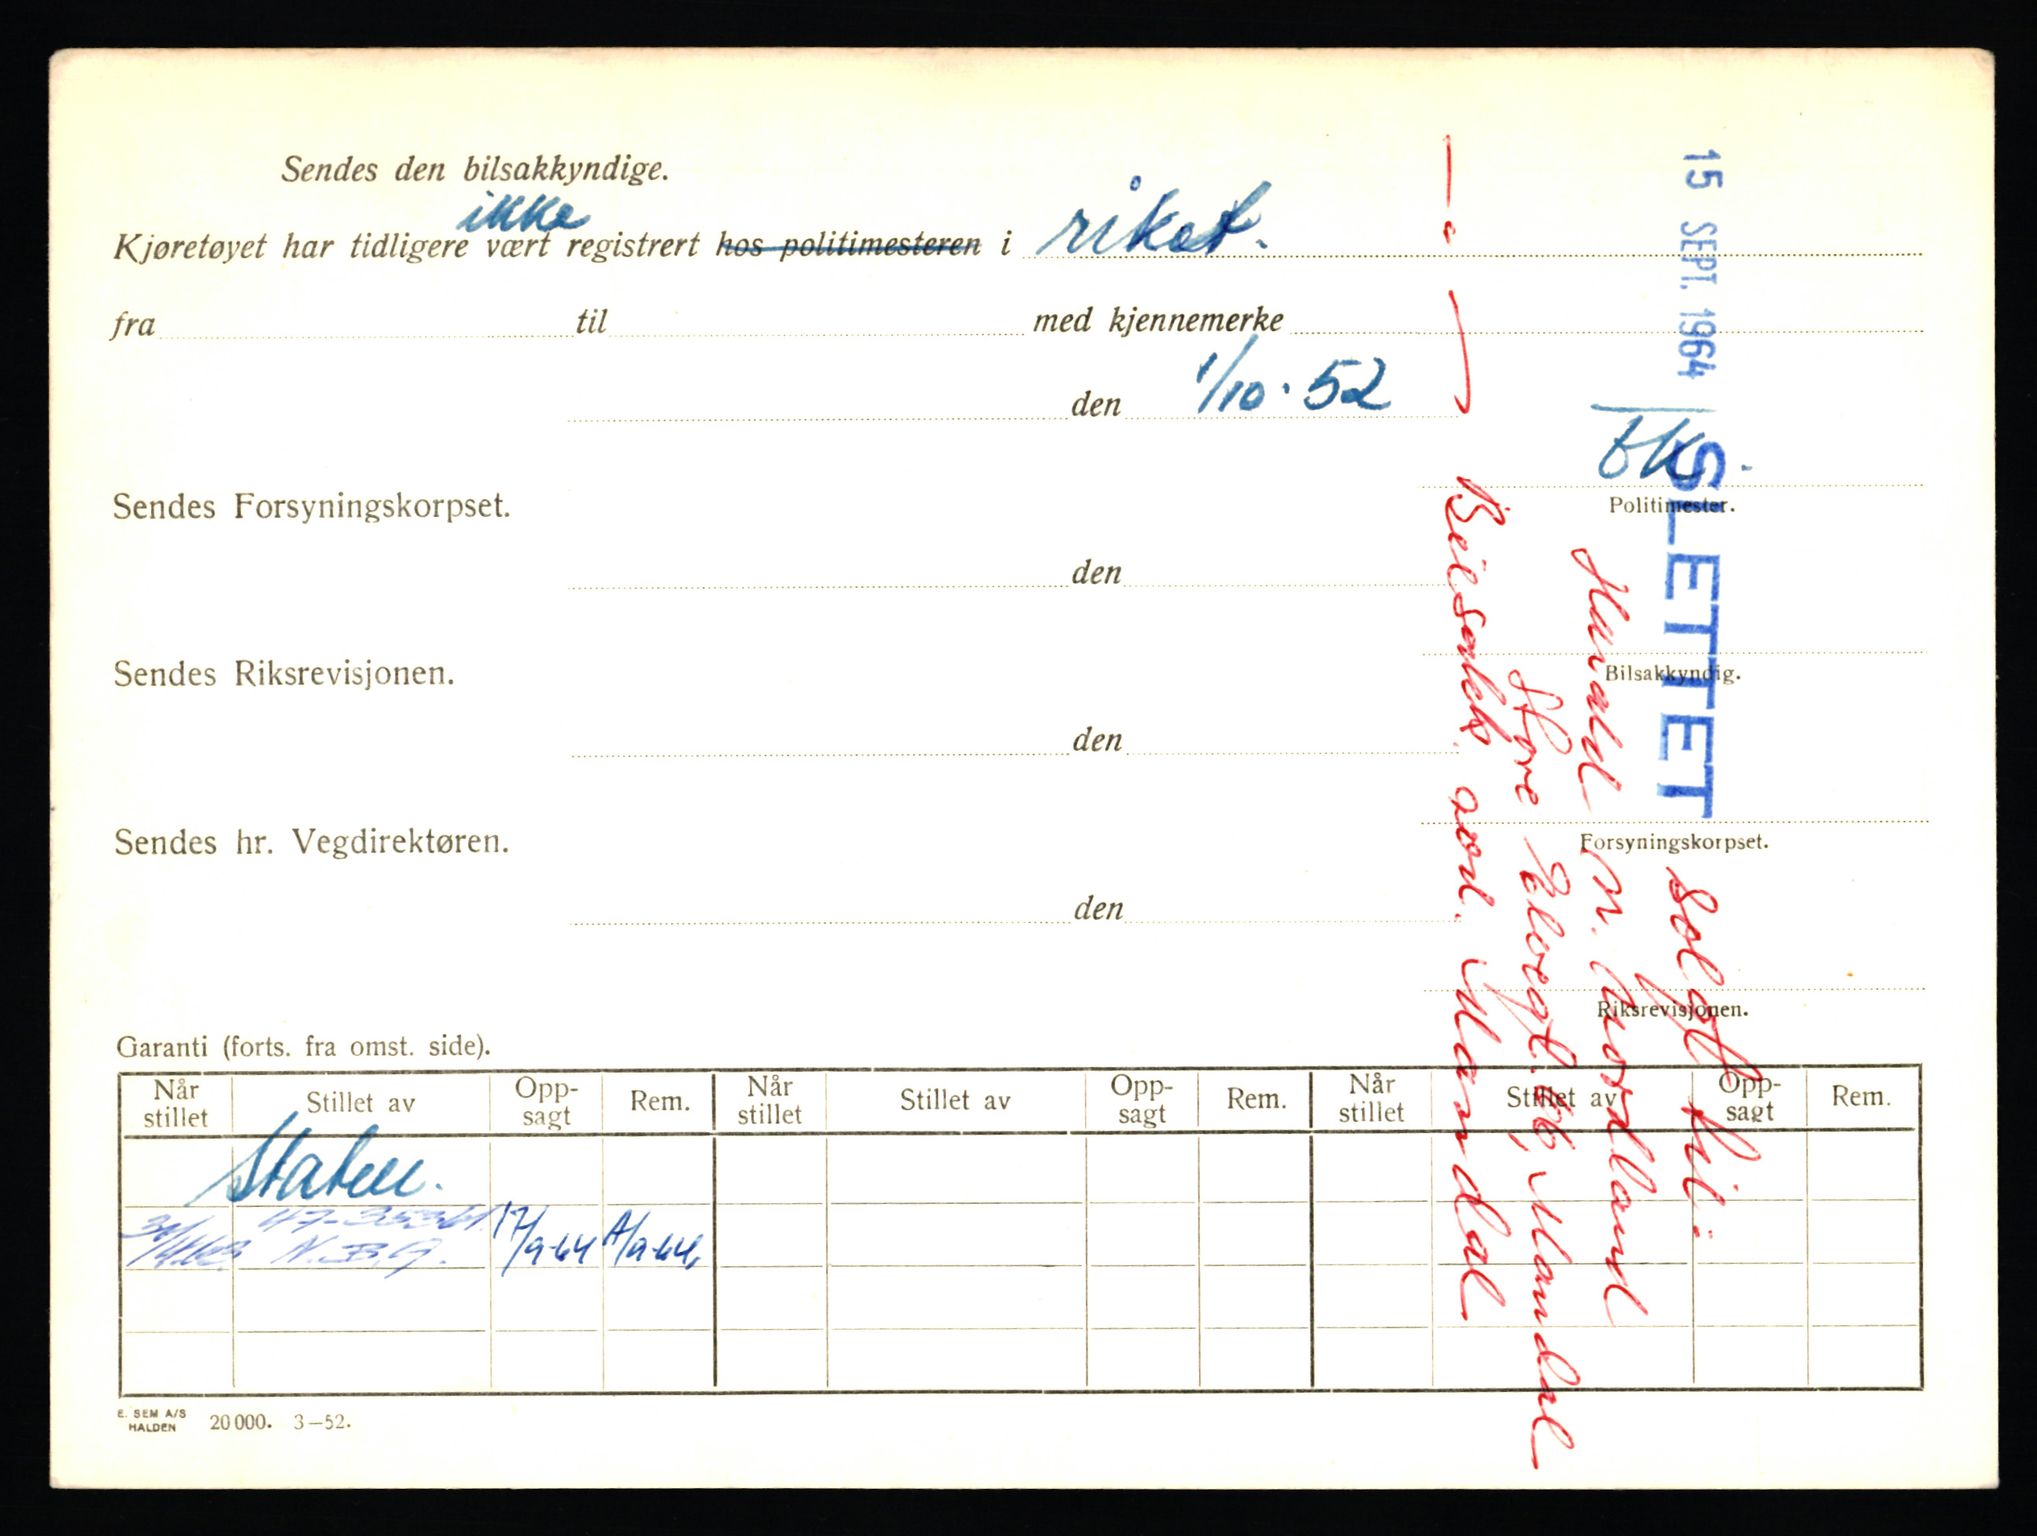 Sendes den bilsakkyndige.
ikke
Kjøretøyet har tidligere vært registrert hos politimesteren i riket.
fra til med kjennemerke
den 1/10-52
Politimester.
Sendes Forsyningskorpset.
den
Bilsakkyndig.
Sendes Riksrevisjonen.
den
Forsyningskorpset.
Sendes hr. Vegdirektøren.
den
Riksrevisjonen.
15 SEPT. 1964
SLETTET
Solgt til:
Harald M. Nordland
Store Elvegt. 66, Mandal
avd. Mandal
Garanti (forts. fra omst. side).
Når stillet Stillet av Opp-sagt Rem. Når stillet Stillet av Opp-sagt Rem. Når stillet Stillet av Opp-sagt Rem.
Staten.
17/9-64
N.B.G.
E. SEM A/S
HALDEN 20 000. 3—52.